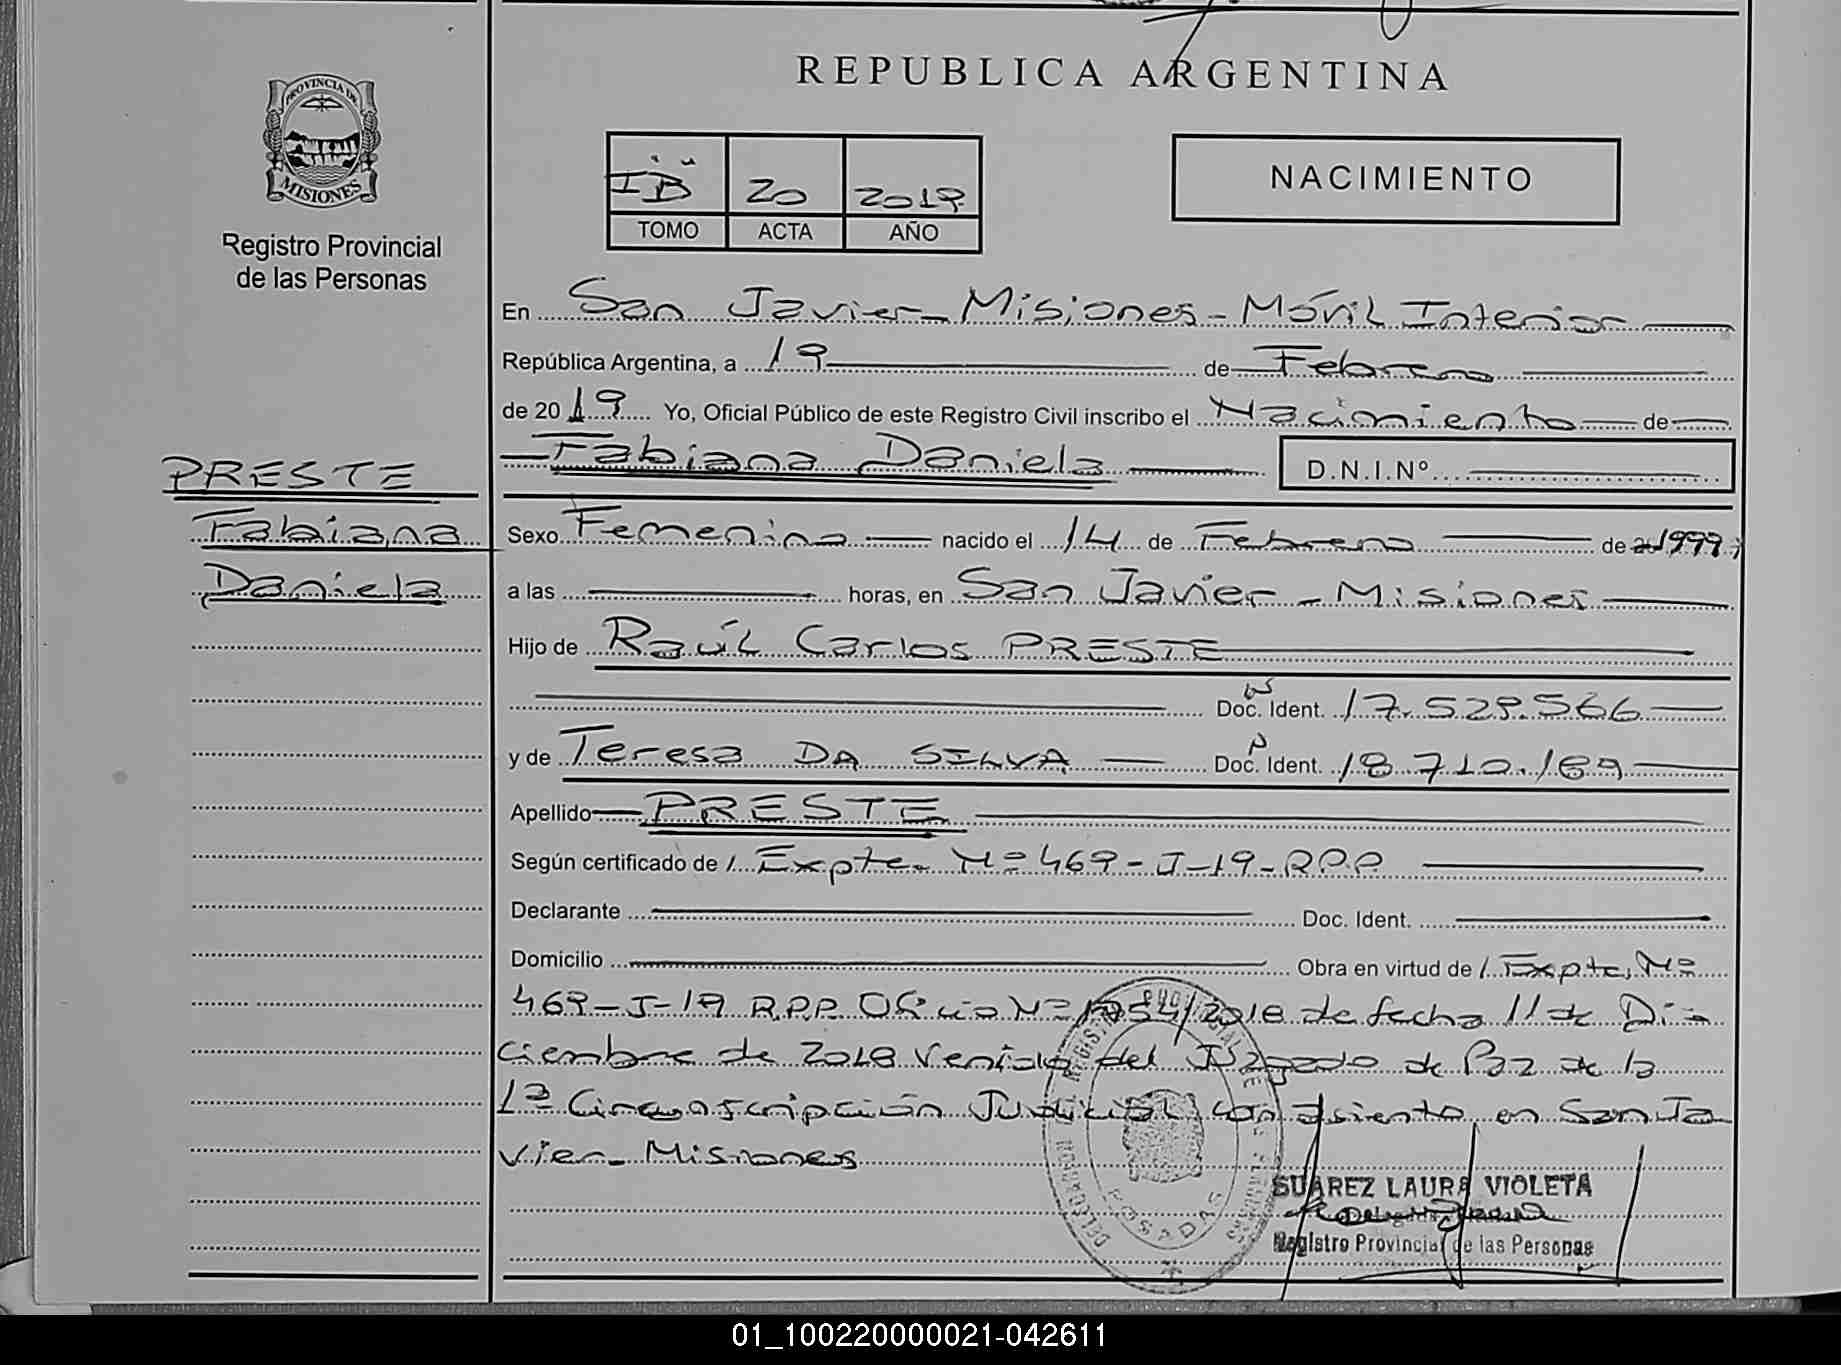 REPUBLICA ARGENTINA
PROVINCIA DE
MISIONES
Registro Provincial
de las Personas
NACIMIENTO
I "B" 20 2019
TOMO ACTA AÑO
En San Javier - Misiones - Móvil Interior
República Argentina, a 19 de Febrero
de 2019 Yo, Oficial Público de este Registro Civil inscribo el Nacimiento de
Fabiana Daniela D.N.I.Nº
PRESTE
Fabiana
Daniela
Sexo Femenino nacido el 14 de Febrero de 1999
a las horas, en San Javier - Misiones
Hijo de Raúl Carlos PRESTE
Doc. Ident. 17.529.566
y de Teresa DA SILVA Doc. Ident. 18.710.189
Apellido PRESTE
Según certificado de / Expte. Nº 469-J-19-R.P.P.
Declarante Doc. Ident.
Domicilio Obra en virtud de / Expte, Nº
469-J-19 R.P.P. Oficio Nº /2018 de fecha 11 de Di
ciembre de 2018 Venido del Juzgado de Paz de la
1ª Circunscripción Judicial con asiento en San Ja
vier - Misiones
POSADAS
SUAREZ LAURA VIOLETA
Registro Provincial de las Personas
01_100220000021-042611